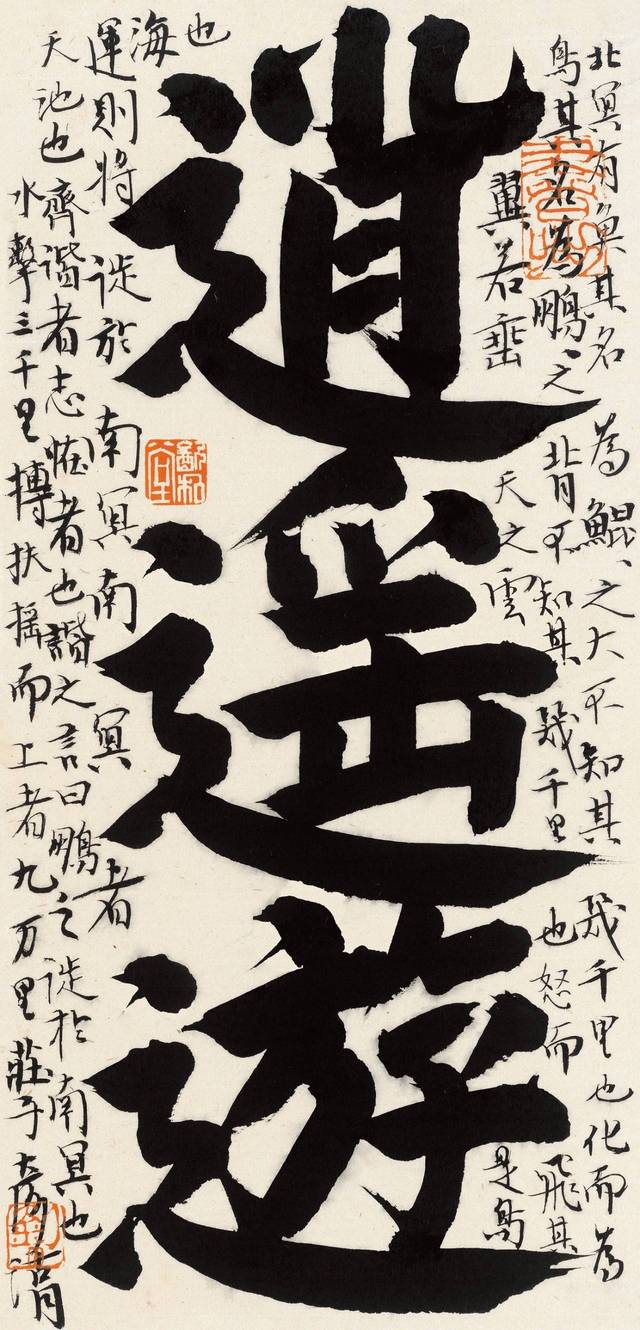 北冥有魚其名為鯤、之大不知其幾千里也化而為
鳥其名為鵬、之背不知其幾千里也怒而飛其
翼若垂天之雲是鳥
逍遙遊
也
海
運則將徙於南冥南冥者
天池也齊諧者志怪者也諧之言曰鵬之徙於南冥也
水擊三千里摶扶搖而上者九万里莊子